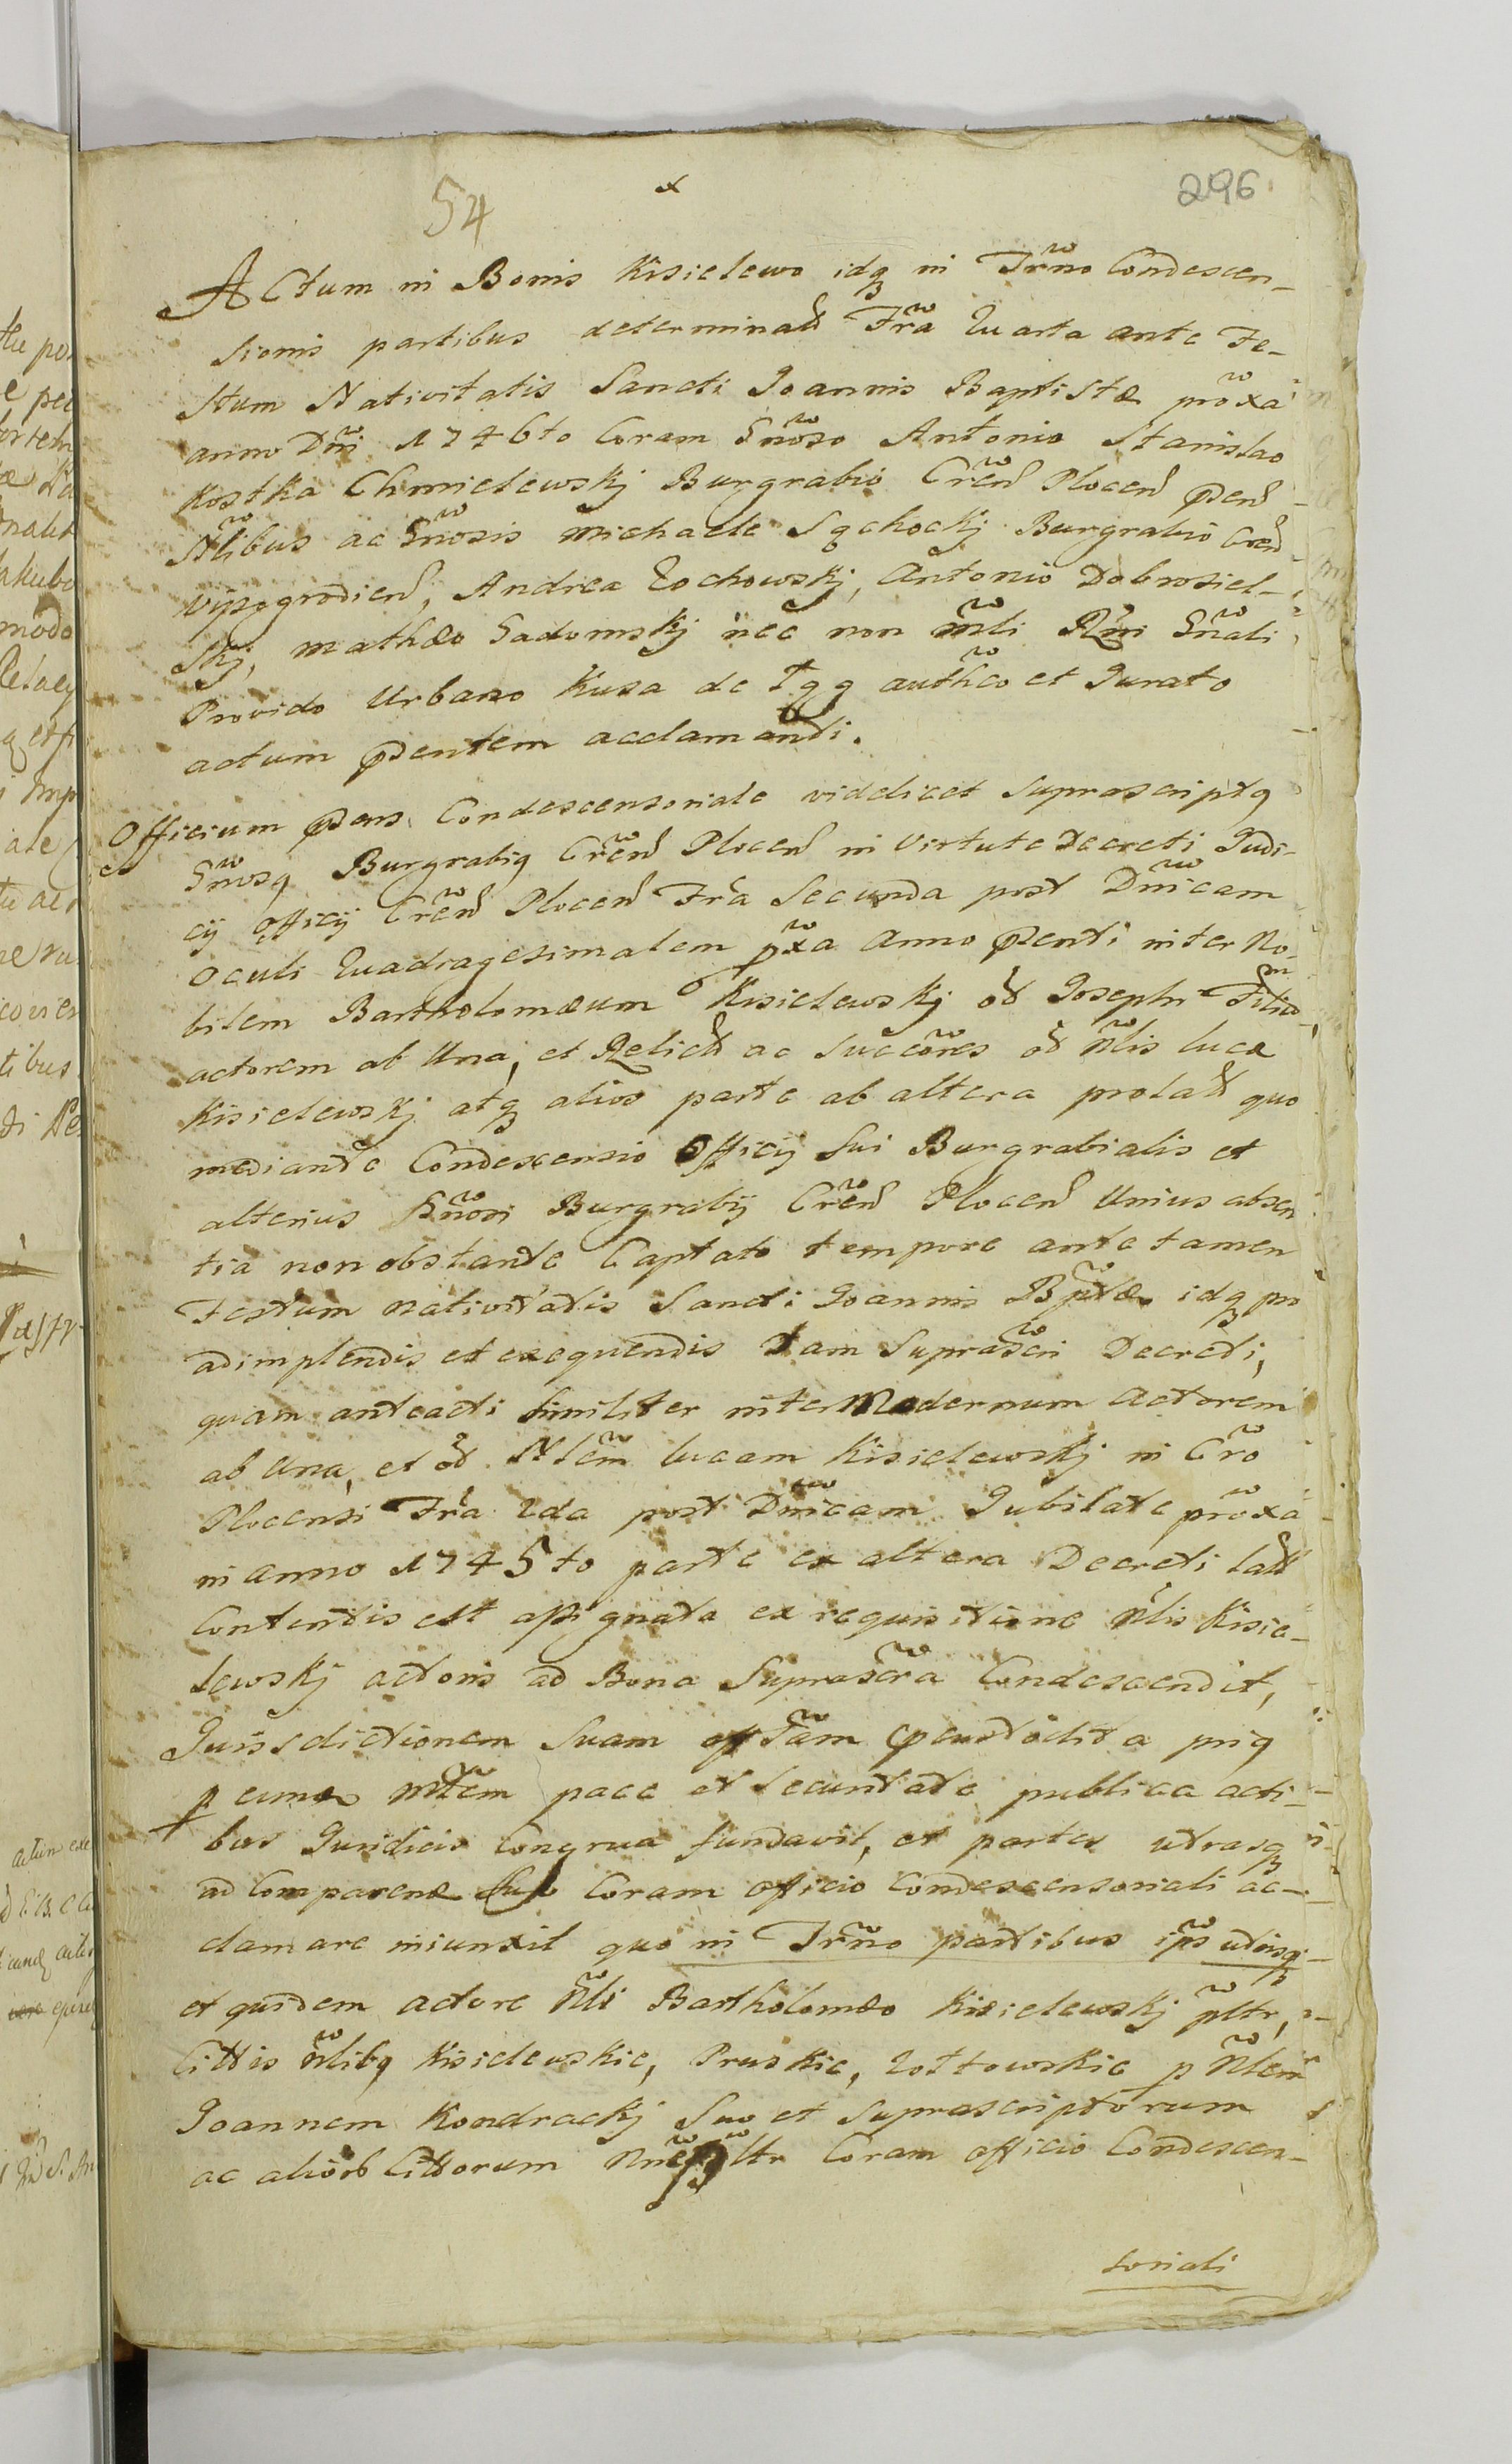 54
296
Actum in Bonis Kisielewo idq in Trño Condescen-
sionis partibus determinat Fra Quarta ante Fe-
stum Nativitatis Sancti Joannis Baptistæ próxa
anno Dñi 1746to Coram Gñoso Antonio Stanislao
Kostka Chmielewskj Burgrabio Crẽn Plocen pñen
Nlibus ac Gñosis Michaele Sąchockj Burgrabio Cren
Vyszogrodien, Andrea Zochowskj, Antonio Dobrosiel-
skj, Mathæo Sadomskj nec non mlti Rñi Gñali
Provido Urbano Kusa de authco et Jurato
actum pñentem acclamandi.
Officium pñens Condescensoriale videlicet Suprascriptq
Gñosq Burgrabiq Crẽn Plocen in Virtute Decreti Judi-
cij Officij Crẽn Plocen Fra Secunda post Dñicam
Oculi Quadragesimalem pxa Anno pñenti inter No-
bilem Bartholomæum Kisielewskj od Josephi Filiũ
actorem ab Una, et Relict ac Succõres od Nlis Lucæ
Kisielewskj atq alios parte ab altera prolat quo
mediante Condescensio Officij Sui Burgrabialis et
alterius Gñosi Burgrabij Crẽn Plocen Unius absen
tia non obstante Captato tempore ante tamen
Festum Nativitatis Sancti Joannis Bptæ idq pro
adimplendis et exequendis tam Supradcti Decreti,
quam anteacti similiter inter Modernum Actorem
ab Una, et od Nlem Lucam Kisielewskj in Crõ
Plocensi Fra 2da post Dñicam Jubilate próxa
in anno 1745to parte ex altera Decreti lat
Contentis est assignata ex requisitione Nlis Kisie-
lewskj actoris ad Bona Suprascra Condescendit,
Jurisdictionem Suam offtam pcustodita priq
p eum mtem pace et Securitate publica acti-
bus Juridicis Congrua fundavit, et partes utrasq
ad Comparen Coram Officio Condescensoriali ac-
clamare iniunxit quo in Trño partibus ips utrisq
et quidem actore Nli Bartholomæo Kisielewskj pltr,
Cittis Nlibq Kisielewskie, Pruskie, Zołtowskie p Nlem
Joannem Kondrackj Suo et Suprascriptorum
ac aliorb Cittorum Nñe pltr Coram Officio Condescen-
soriali